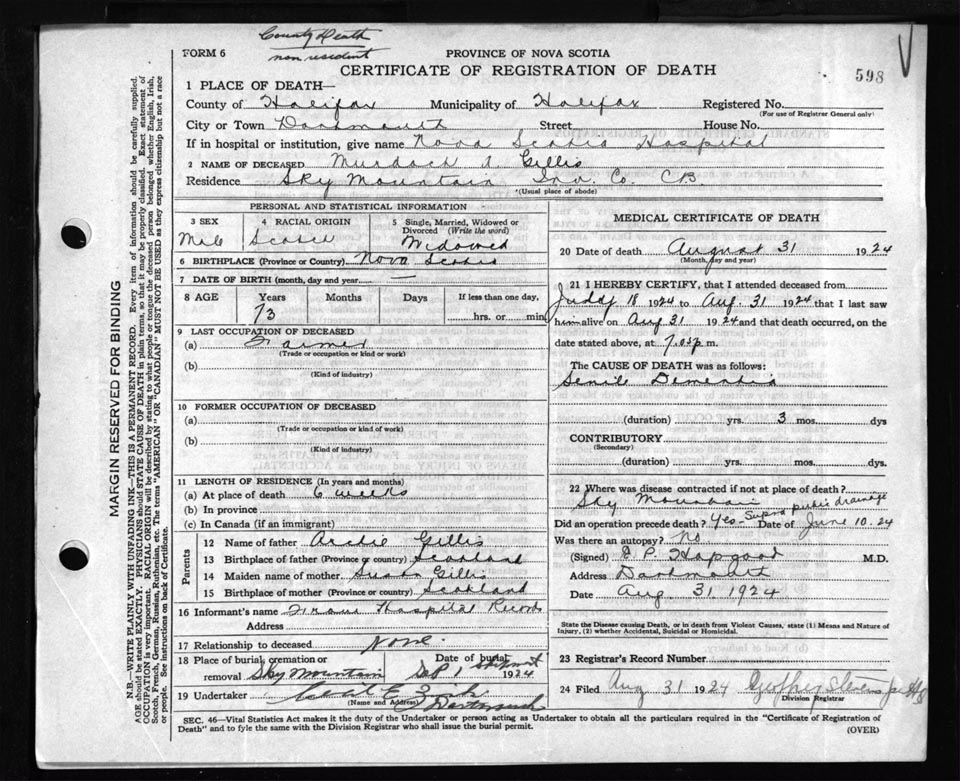 County Death
non resident
598
FORM 6
PROVINCE OF NOVA SCOTIA
CERTIFICATE OF REGISTRATION OF DEATH
1 PLACE OF DEATH—
County of Halifax Municipality of Halifax Registered No.
(For use of Registrar General only)
City or Town Dartmouth Street House No.
If in hospital or institution, give name Nova Scotia Hospital
2 NAME OF DECEASED Murdoch A Gillis
Residence Sky Mountain Inv. Co. C.B.
*(Usual place of abode)
PERSONAL AND STATISTICAL INFORMATION
3 SEX 4 RACIAL ORIGIN 5 Single, Married, Widowed or Divorced (Write the word)
Male Scotch Widowed
6 BIRTHPLACE (Province or Country) Nova Scotia
7 DATE OF BIRTH (month, day and year) —
8 AGE Years Months Days If less than one day,
73 hrs. or min.
9 LAST OCCUPATION OF DECEASED
(a) Farmer
(Trade or occupation or kind or work)
(b)
(Kind of industry)
10 FORMER OCCUPATION OF DECEASED
(a)
(Trade or occupation or kind of work)
(b)
(Kind of industry)
11 LENGTH OF RESIDENCE (In years and months)
(a) At place of death 6 weeks
(b) In province
(c) In Canada (if an immigrant)
Parents
12 Name of father Archie Gillis
13 Birthplace of father (Province or country) Scotland
14 Maiden name of mother Susan Gillis
15 Birthplace of mother (Province or country) Scotland
16 Informant's name From Hospital Records
Address
17 Relationship to deceased None
18 Place of burial, cremation or removal Sky Mountain Date of burial Sep 1, 1924
19 Undertaker
(Name and Address) Dartmouth
MEDICAL CERTIFICATE OF DEATH
20 Date of death August 31 1924
(Month, day and year)
21 I HEREBY CERTIFY, that I attended deceased from
July 18 1924 to Aug. 31 1924 that I last saw
him alive on Aug 31 1924 and that death occurred, on the
date stated above, at p.m.
The CAUSE OF DEATH was as follows:
Senile Dementia
(duration) yrs. 3 mos. dys
CONTRIBUTORY
(Secondary)
(duration) yrs. mos. dys.
22 Where was disease contracted if not at place of death?
Sky Mountain
Did an operation precede death? Yes - Supra pubic drainage Date of June 10.24
Was there an autopsy? No
(Signed) E P. Hopgood M.D.
Address Dartmouth
Date Aug. 31 1924
State the disease causing Death, or in death from Violent Causes, state (1) Means and Nature of Injury, (2) whether Accidental, Suicidal or Homicidal.
23 Registrar's Record Number
24 Filed Aug 31 1924 Geoffrey
Division Registrar
SEC. 46—Vital Statistics Act makes it the duty of the Undertaker or person acting as Undertaker to obtain all the particulars required in the "Certificate of Registration of
Death" and to fyle the same with the Division Registrar who shall issue the burial permit.
(OVER)
MARGIN RESERVED FOR BINDING
N.B.—WRITE PLAINLY WITH UNFADING INK—THIS IS A PERMANENT RECORD. Every item of information should be carefully supplied.
AGE should be stated EXACTLY. PHYSICIANS should STATE CAUSE OF DEATH in plain terms, so that it may be properly classified. Exact statement of
OCCUPATION is very important. RACIAL ORIGIN will be described by stating to what people or tongue the deceased person belonged whether English, Irish,
Scotch, French, German, Russian, Ruthenian, etc. The terms "AMERICAN" or "CANADIAN" MUST NOT BE USED as they express citizenship but not a race
or people. See instructions on back of Certificate.